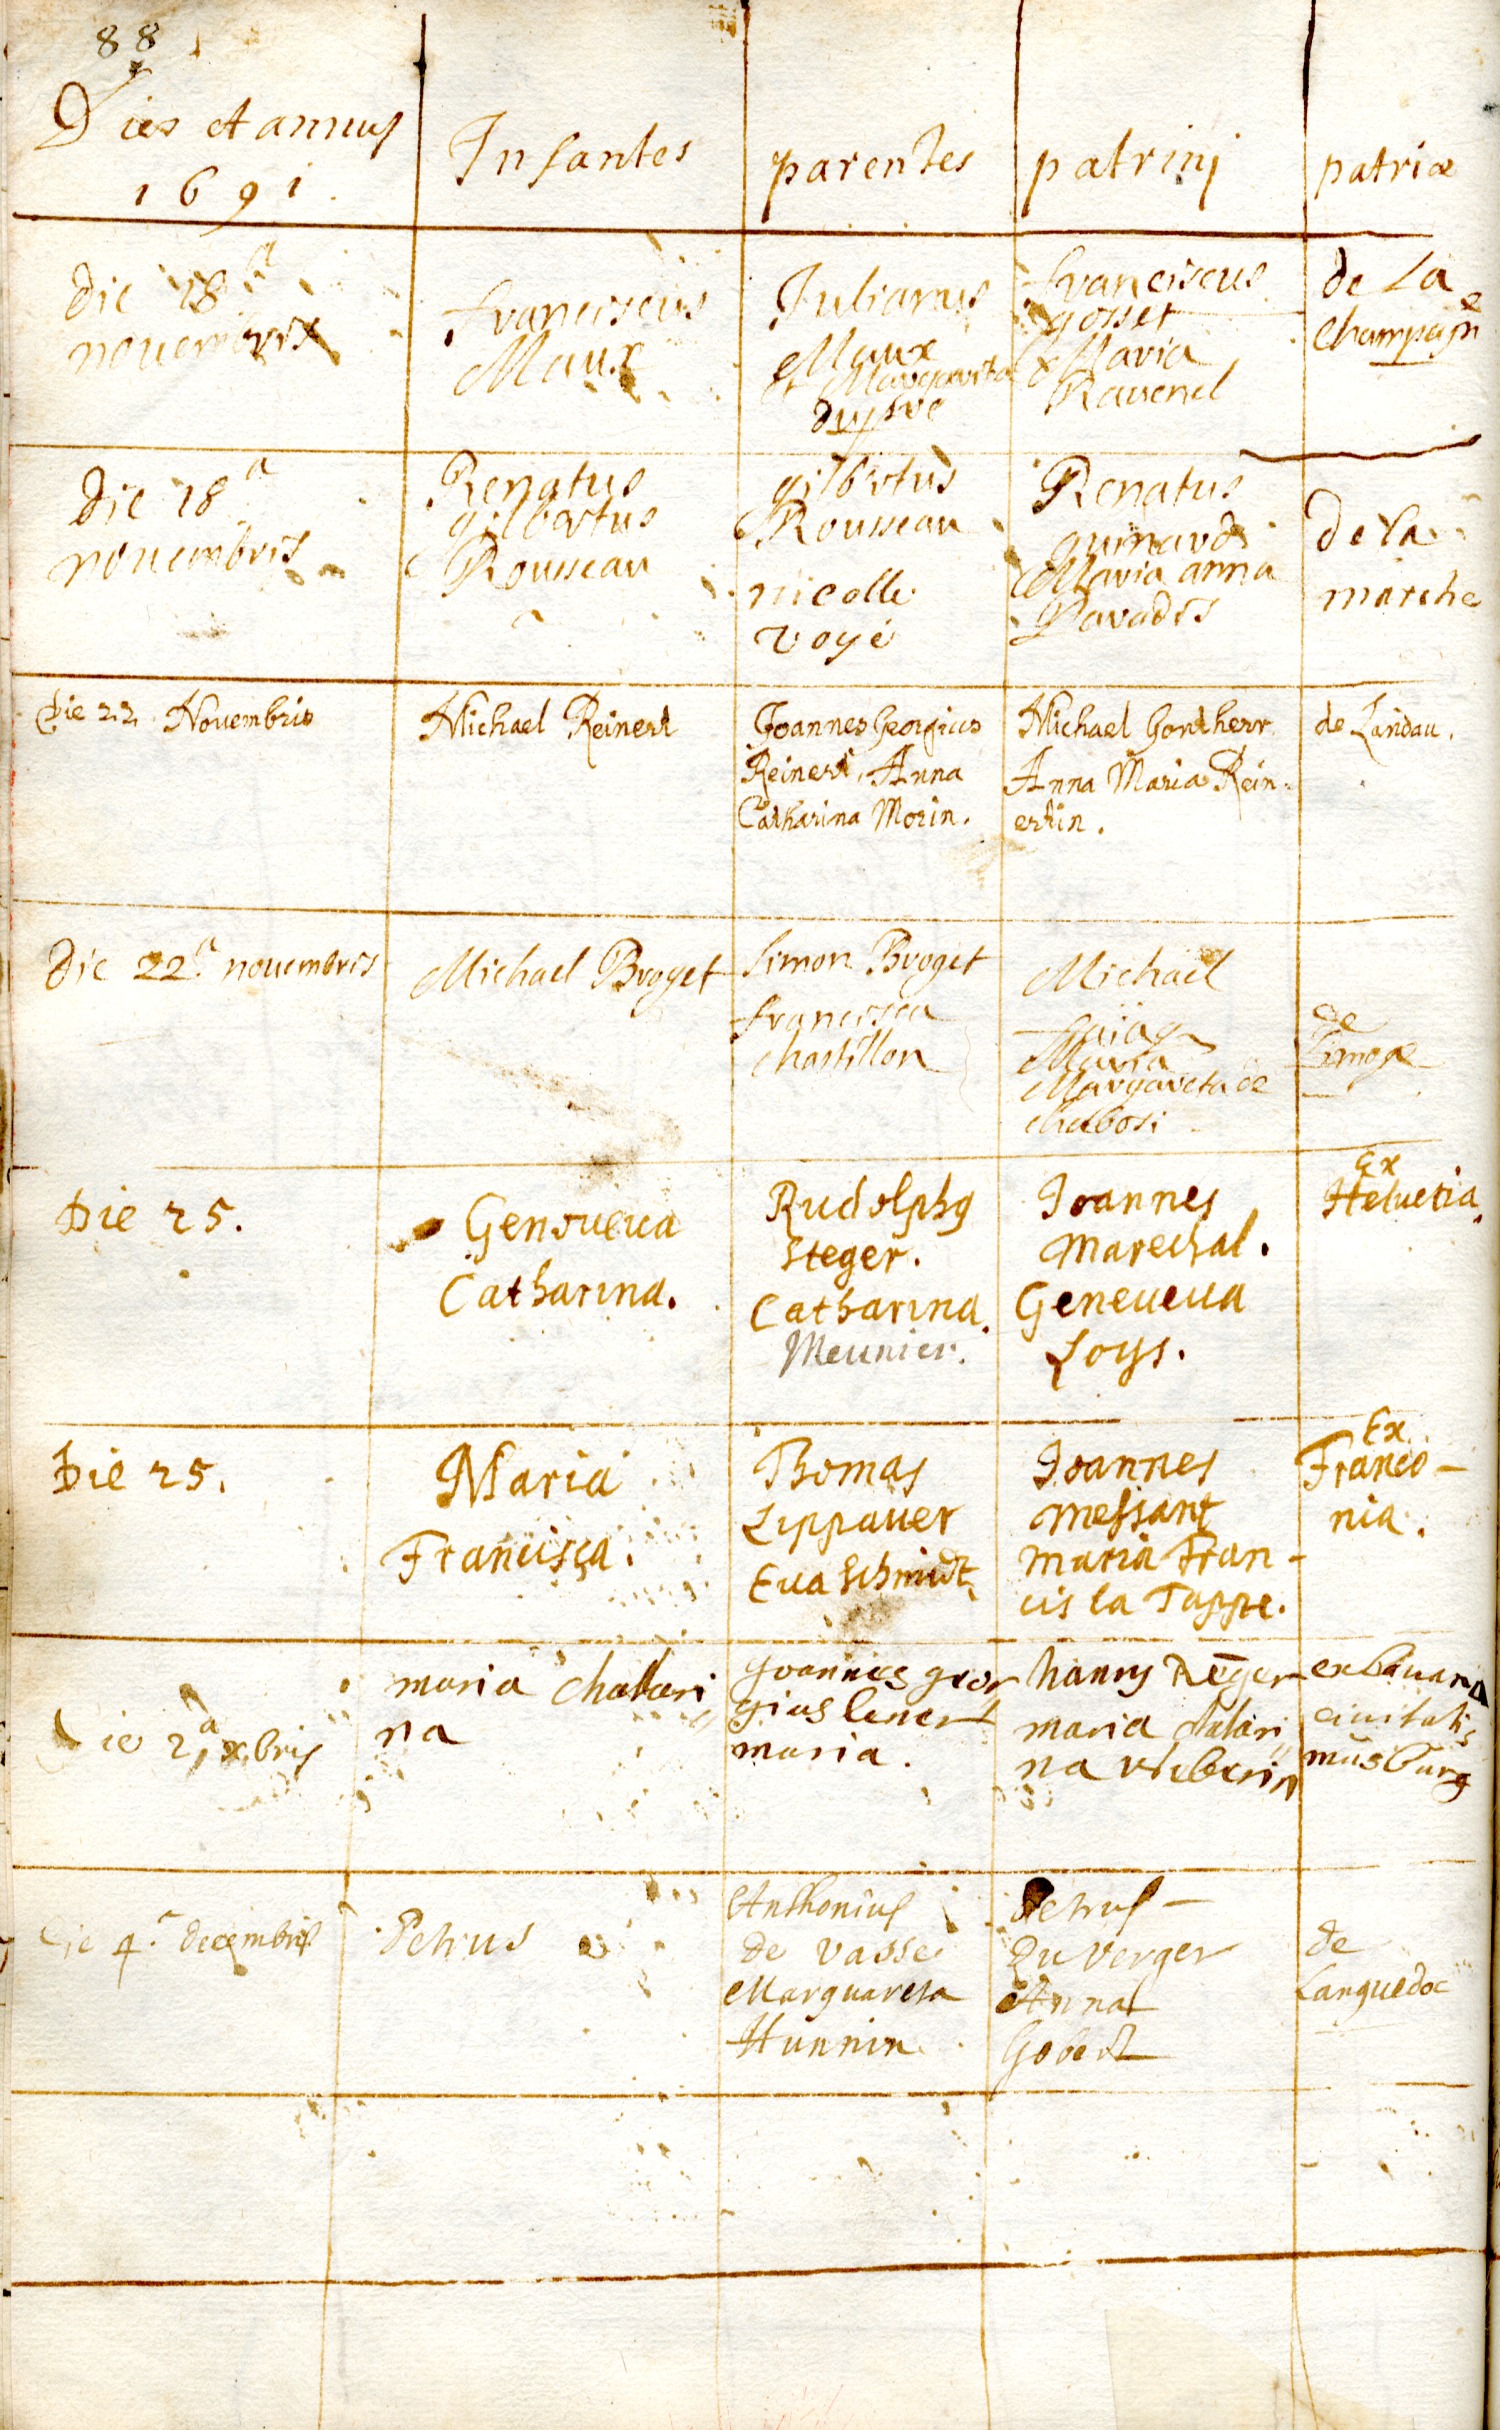 88
Dies et annus
1691.
Infantes
parentes
patrinj
patriæ
die 18a
nouembris
franciscus
Maux
Julianus
Maux
et Margarita
franciscus
gosset
& Maria
Ravenel
de La
Champagne
die 18a
nouembris
Renatus
gilbertus
Rousseau
gilbertus
Rousseau
nicolle
voyé
Renatus
Maria anna
de la
marche
Die 22. Nouembris
Michael Reinert
Joannes Georgius
Reinert, Anna
Catharina Morin.
Michael Gontherr
Anna Maria Rein-
ertin.
de Landau.
die 22a nouembris
Michael Broget
Simon Broget
francisca
chastillon
Michael
Maria
Margareta de
de
Limoge
Die 25.
Genoueua
Catharina.
Rudolphg
Steger.
Catharina.
Meunier.
Joannes
Marechal.
Geneueua
Loys.
Ex
Heluetia.
Die 25.
Maria
Francisca.
Thomas
Lippauer
Eua Schmidt
Joannes
Messant
Maria Fran-
cis la Tappe.
Ex
Franco-
nia.
Die 2a xbris
maria chatari
na
Joannes geor
gius lener
maria.
hanns Reger
maria chatari
na weberin
ex bauaria
ciuitatis
musburg
Die 4a decembris
Petrus
Anthonius
de vasse
Marguareta
Hunnin
Petrus
Du verger
Anna
Gobert
de
Languedoc